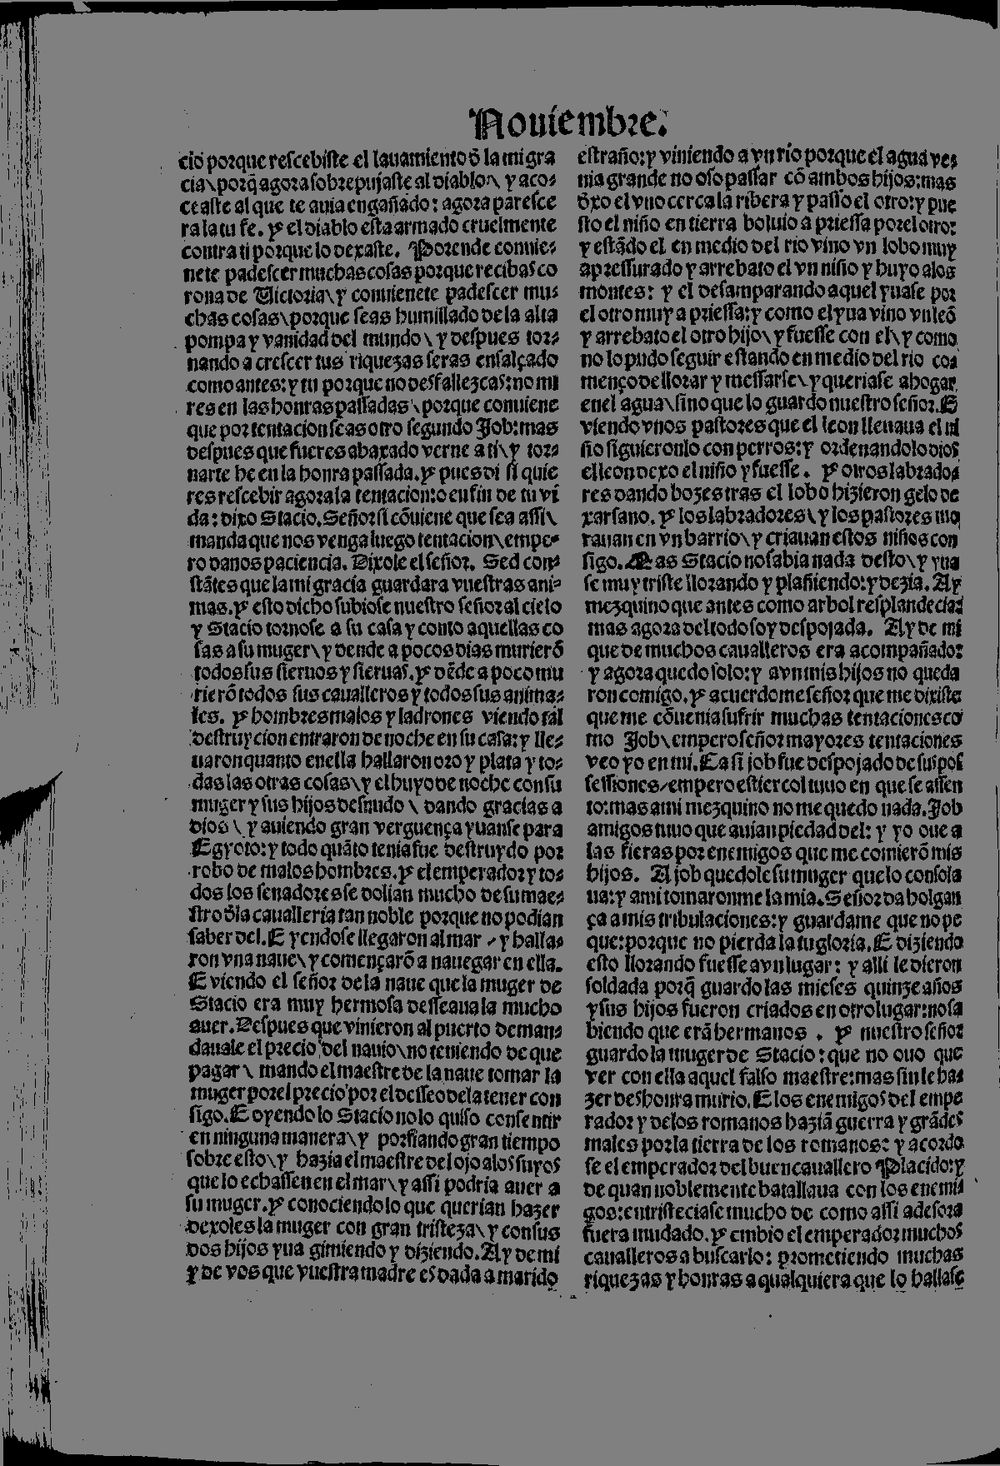 Nouiembre.
cio porque rescebiste el lauamiento õ la mi gra
cia\ porq̃ agora sobrepujaste al diablo\ y aco-
ceaste al que te auia engañado: agora paresce
ra la tu fe. y el diablo esta armado cruelmente
contra ti porque lo dexaste. Porende conuie-
nete padescer muchas cosas porque recibas co
rona de Uictoria\ y conuienete padescer mu-
chas cosas\ porque seas humillado de la alta
pompa y vanidad del mundo\ y despues tor-
nando a crescer tus riquezas seras ensalçado
como antes: y tu porque no desfallezcas: no mi
res en las honras passadas\ porque conuiene
que por tentacion seas otro segundo Job: mas
despues que fueres abaxado verne a ti\ y tor-
narte he en la honra passada. y pues di si quie
res rescebir agora la tentacion: o en fin de tu vi
da: dixo Stacio. Señor si cõuiene que sea assi\
manda que nos venga luego tentacion\ empe-
ro danos paciencia. Dixole el señor. Sed con-
stãtes que la mi gracia guardara vuestras ani-
mas. y esto dicho subiose nuestro señor al cielo
y Stacio tornose a su casa y conto aquellas co
sas a su muger\ y dende a pocos dias murierõ
todos sus sieruos y sieruas. y dẽde a poco mu
rierõ todos sus caualleros y todos sus anima-
les. y hombres malos y ladrones viendo tal
destruycion entraron de noche en su casa: y lle-
uaron quanto en ella hallaron oro y plata y to-
das las otras cosas\ y el huyo de noche con su
muger y sus hijos desnudo\ dando gracias a
dios\ y auiendo gran verguença yuanse para
Egypto: y todo quãto tenia fue destruydo por
robo de malos hombres. y el emperador y to-
dos los senadores se dolian mucho de su maes-
stro õla caualleria tan noble porque no podian
saber del. E yendose llegaron al mar / y halla-
ron vna naue\ y començarõ a nauegar en ella.
E viendo el señor de la naue que la muger de
Stacio era muy hermosa desseauala mucho
auer. Despues que vinieron al puerto deman-
dauale el precio del nauio\ no teniendo de que
pagar\ mando el maestre de la naue tomar la
muger por el precio por el desseo de la tener con
sigo. E oyendo lo Stacio no lo quiso consentir
en ninguna manera\ y porfiando gran tiempo
sobre esto\ y hazia el maestre del ojo a los suyos
que lo echassen en el mar\ y assi podria auer a
su muger. y conociendo lo que querian hazer
dexoles la muger con gran tristeza\ y con sus
dos hijos yua gimiendo y diziendo. Ay de mi
y de vos que vuestra madre es dada a marido
estraño: y viniendo a vn rio porque el agua ve-
nia grande no oso passar cõ ambos hijos: mas
õxo el vno cerca la ribera y passo el otro: y pue
sto el niño en tierra boluio a priessa por el otro:
y estãdo el en medio del rio vino vn lobo muy
apressurado y arrebato el vn niño y huyo a los
montes: y el desamparando aquel yuase por
el otro muy a priessa: y como el yua vino vn leõ
y arrebato el otro hijo\ y fuesse con el\ y como
no lo pudo seguir estando en medio del rio co-
menço de llorar y messarse\ y queriase ahogar
en el agua\ sino que lo guardo nuestro señor. E
viendo vnos pastores que el leon lleuaua el ni
ño siguieronlo con perros: y ordenandolo dios
el leon dexo el niño y fuesse. y otros labrado-
res dando bozes tras el lobo hizieron gelo de
xar sano. y los labradores\ y los pastores mo
rauan en vn barrio\ y criauan estos niños con
sigo. Mas Stacio no sabia nada desto\ y yua
se muy triste llorando y plañiendo: y dezia. Ay
mezquino que antes como arbol resplandecia:
mas agora del todo soy despojada. Ay de mi
que de muchos caualleros era acompañado:
y agora quedo solo: y avn mis hijos no queda
ron comigo. y acuerdome señor que me dixiste
que me cõuenia sufrir muchas tentaciones co
mo Job\ empero señor mayores tentaciones
veo yo en mi. Ca si job fue despojado de sus pos
sessiones/ empero estiercol tuuo en que se assen
to: mas a mi mezquino no me quedo nada. Job
amigos tuuo que auian piedad del: y yo oue a
las fieras por enemigos que me comierõ mis
hijos. A job quedole su muger que lo consola
ua: y a mi tomaronme la mia. Señor da holgan
ça a mis tribulaciones: y guardame que no pe
que: porque no pierda la tu gloria. E diziendo
esto llorando fuesse a vn lugar: y alli le dieron
soldada porq̃ guardo las mieses quinze años
y sus hijos fueron criados en otro lugar: no sa
biendo que erã hermanos . y nuestro señor
guardo la muger de Stacio: que no ouo que
ver con ella aquel falso maestre: mas sin le ha-
zer deshonra murio. E los enemigos del empe
rador y de los romanos haziã guerra y grãdes
males por la tierra de los romanos: y acordo
se el emperador del buen cauallero Placido: y
de quan noblemente batallaua con los enemi
gos: entristeciase mucho de como assi adesora
fuera mudado. y embio el emperador muchos
caualleros a buscarlo: prometiendo muchas
riquezas y honras a qualquiera que lo hallase